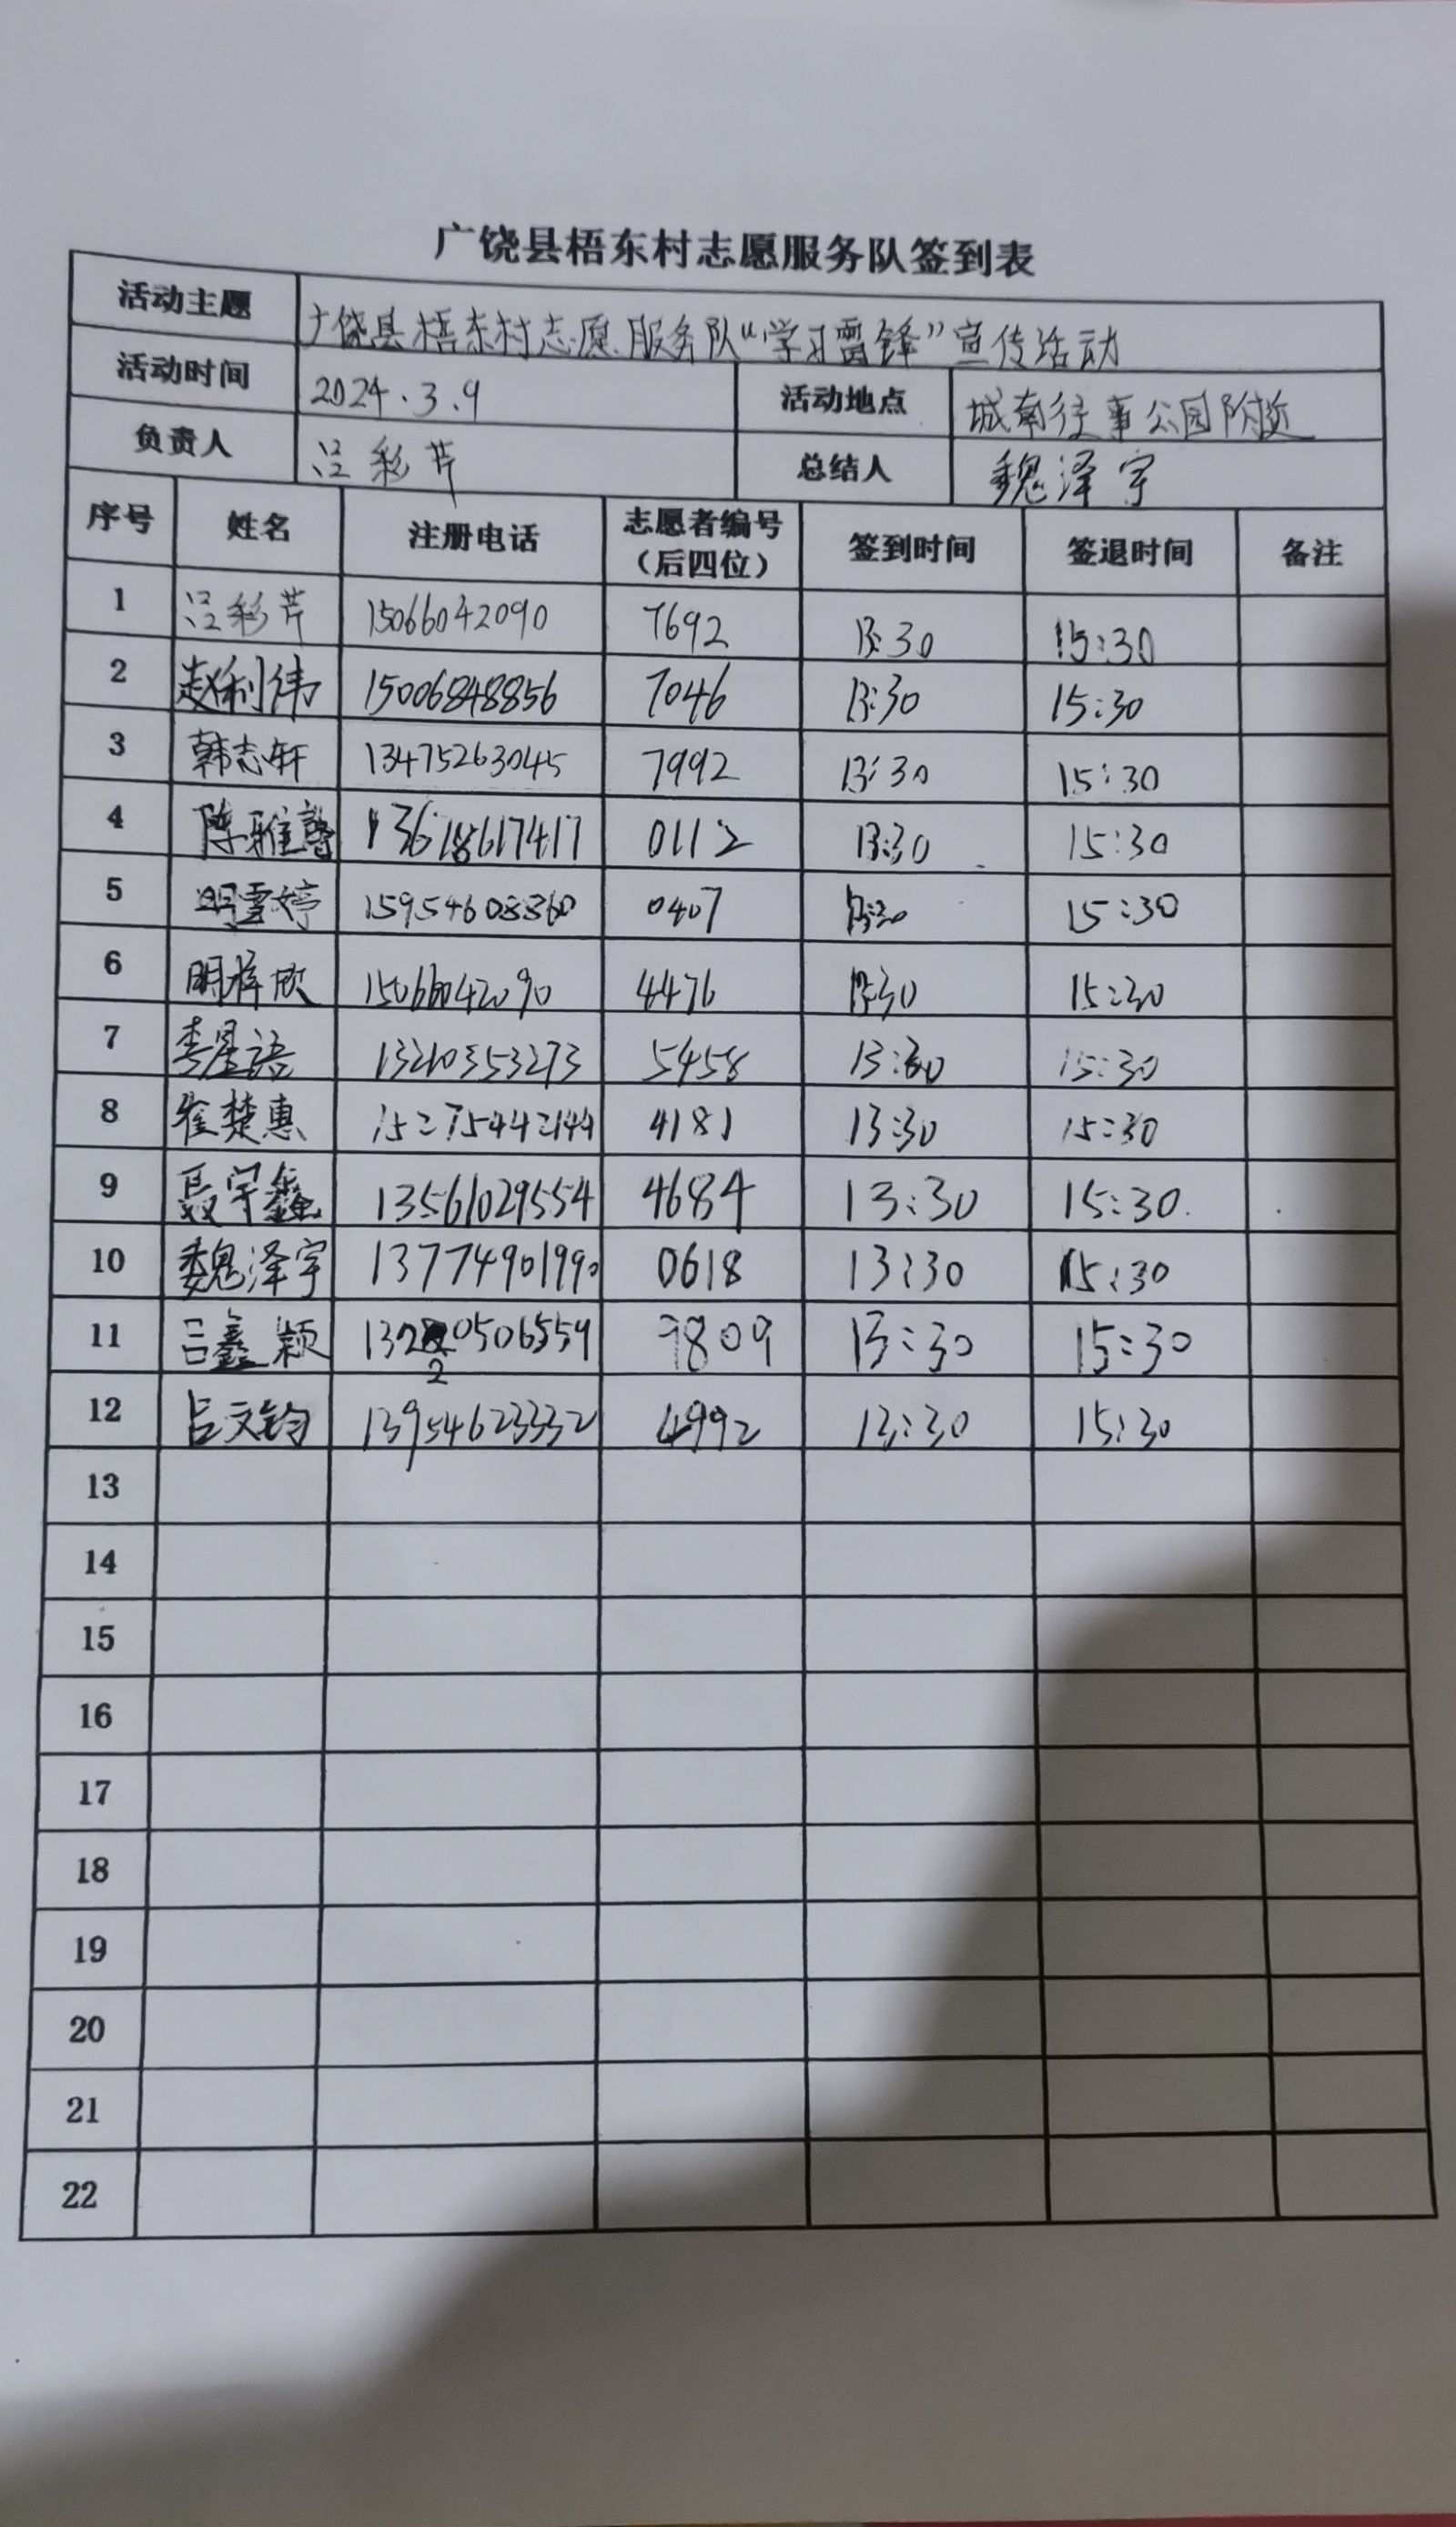 广饶县梧东村志愿服务队签到表
活动主题 广饶县梧东村志愿服务队“学习雷锋”宣传活动
活动时间 2024.3.9 活动地点 城南往事公园附近
负责人 吕彩芹 总结人 魏泽宇
序号 姓名 注册电话 志愿者编号（后四位） 签到时间 签退时间 备注
1 吕彩芹 15066042090 7692 13:30 15:30
2 赵利伟 15006848856 7046 13:30 15:30
3 韩志轩 13475263045 7992 13:30 15:30
4 陈雅馨 13618617417 0112 13:30 15:30
5 明雪婷 15954608360 0407 13:30 15:30
6 明梓欣 15066042090 4476 13:30 15:30
7 李星语 13210353273 5458 13:30 15:30
8 崔楚惠 15275442144 4181 13:30 15:30
9 聂宇鑫 13561029554 4684 13:30 15:30
10 魏泽宇 13774901990 0618 13:30 15:30
11 吕鑫颖 9809 13:30 15:30
12 吕文钧 13954623332 4992 13:30 15:30
13
14
15
16
17
18
19
20
21
22